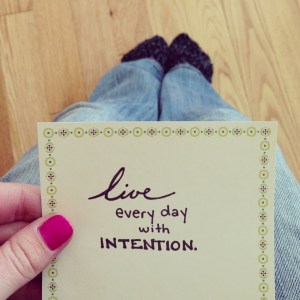 live
every day
with
INTENTION.